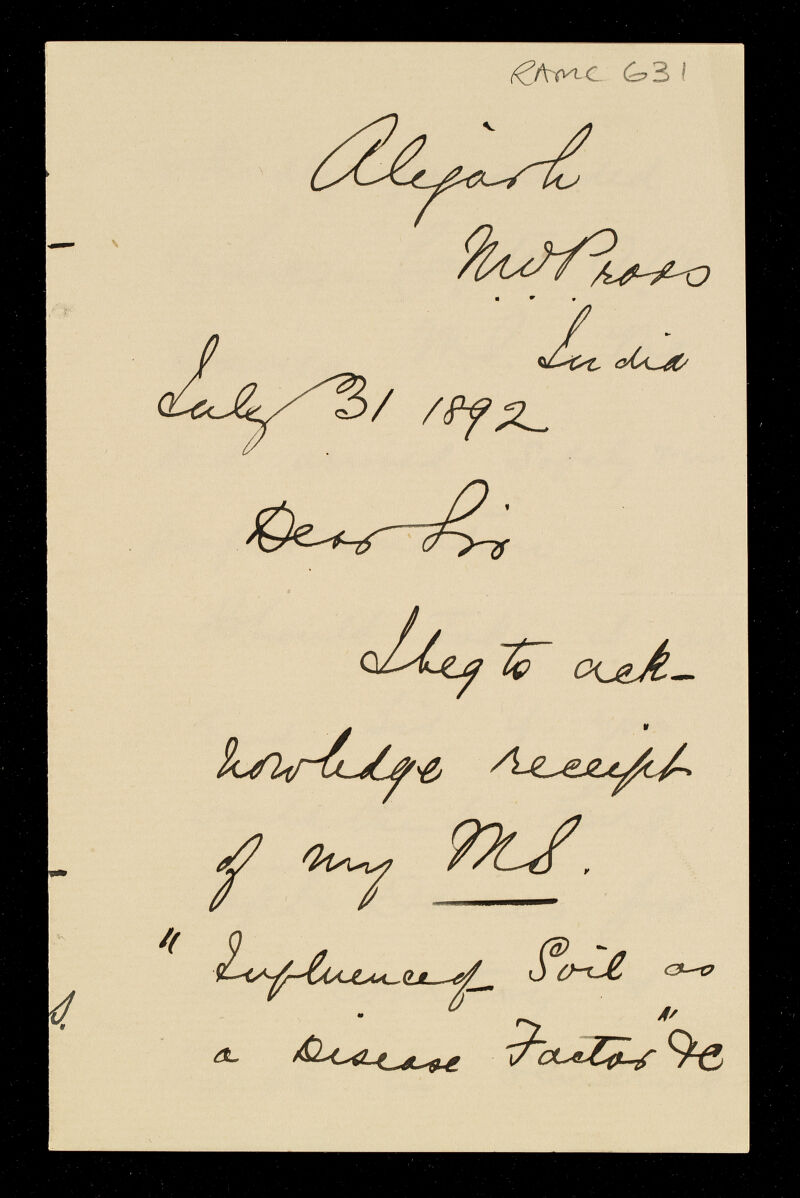 RAMC 631
Aligarh
NW Provs
India
July 31 1892
Dear Sir
I beg to ack-
nowledge receipt
of my MS.
" Influence of Soil as
a Disease Factor" &c